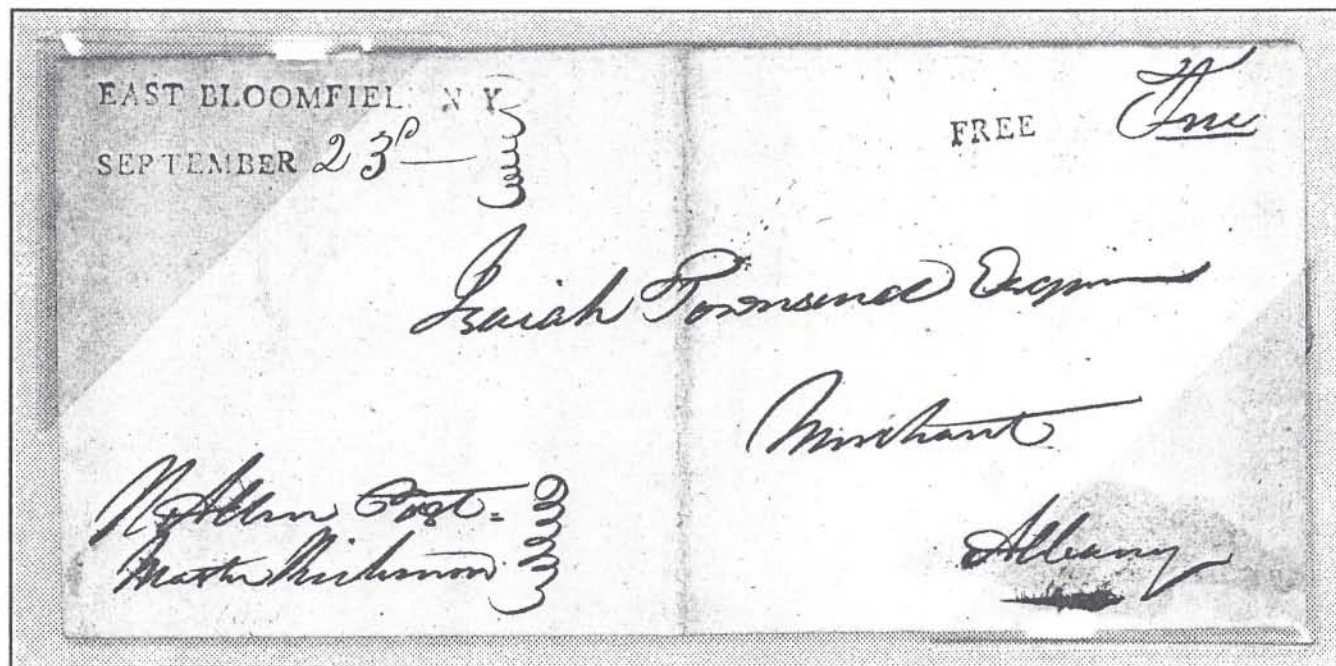 EAST BLOOMFIEL. N Y
SEPTEMBER 23d
FREE Free
Isaiah Townsend Esquire
Merchant
Albany
N. Allen Post-
Master Richmond